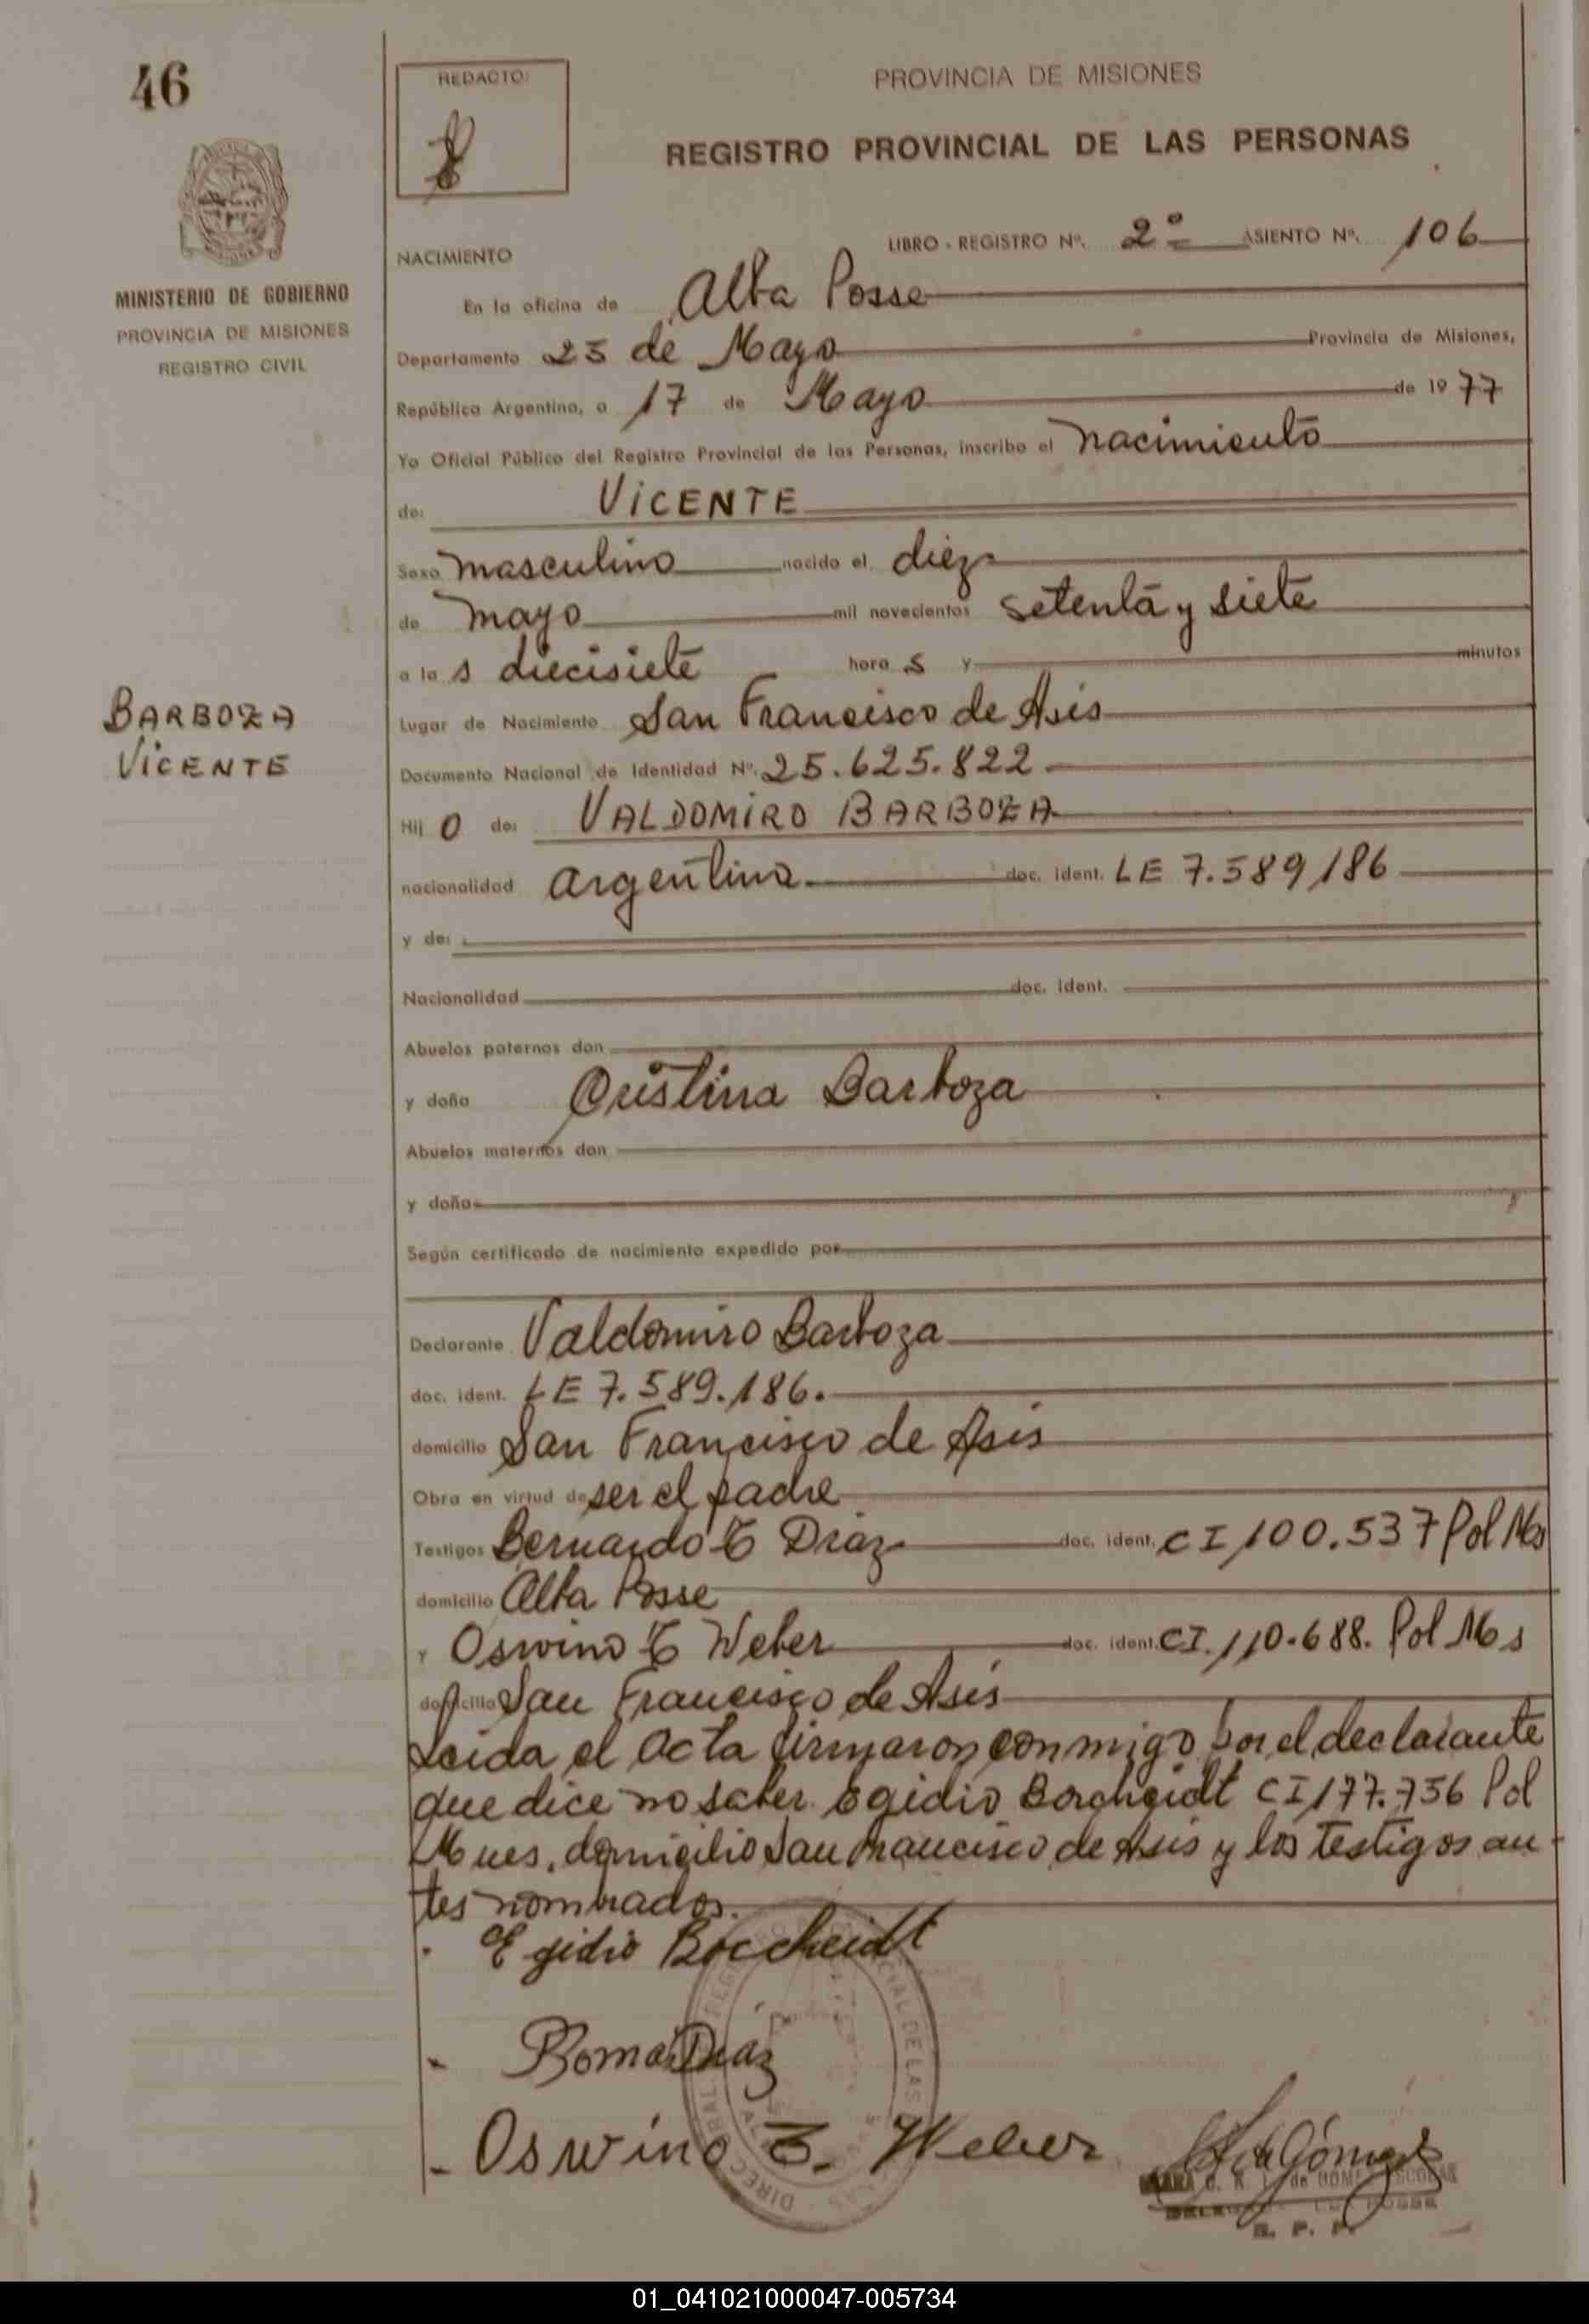 46
REDACTO:
PROVINCIA DE MISIONES
REGISTRO PROVINCIAL DE LAS PERSONAS
MINISTERIO DE GOBIERNO
PROVINCIA DE MISIONES
REGISTRO CIVIL
NACIMIENTO LIBRO - REGISTRO Nº. 2º ASIENTO Nº. 106
En la oficina de Alba Posse
Departamento 25 de Mayo Provincia de Misiones,
República Argentina, a 17 de Mayo de 1977
Yo Oficial Público del Registro Provincial de las Personas, inscribo el nacimiento
de: VICENTE
Sexo masculino nacido el diez
de mayo mil novecientos setenta y siete
a las diecisiete horas y minutos
BARBOZA
VICENTE
Lugar de Nacimiento San Francisco de Asis
Documento Nacional de Identidad Nº. 25.625.822
Hijo de: VALDOMIRO BARBOZA
nacionalidad argentina doc. ident. LE 7.589186
y de:
Nacionalidad doc. ident.
Abuelos paternos don
y doña Cristina Barboza
Abuelos maternos don
y doña
Según certificado de nacimiento expedido por
Declarante Valdomiro Barboza
doc. ident. LE 7.589.186.
domicilio San Francisco de Asis
Obra en virtud de ser el padre
Testigos Bernardo Díaz doc. ident. CI 100.537 Pol Mos
domicilio Alba Posse
y Oswino E Weber doc. ident. CI. 110.688. Pol Mos
domicilio San Francisco de Asis
Leida el Acta firmaron conmigo por el declarante
que dice no saber Egidio CI 177.756 Pol
Mnes, domicilio San Francisco de Asis y los testigos an-
tes nombrados.
Egidio
Díaz
- Oswino E. Weber
de Gómez
R. P. P.
01_041021000047-005734